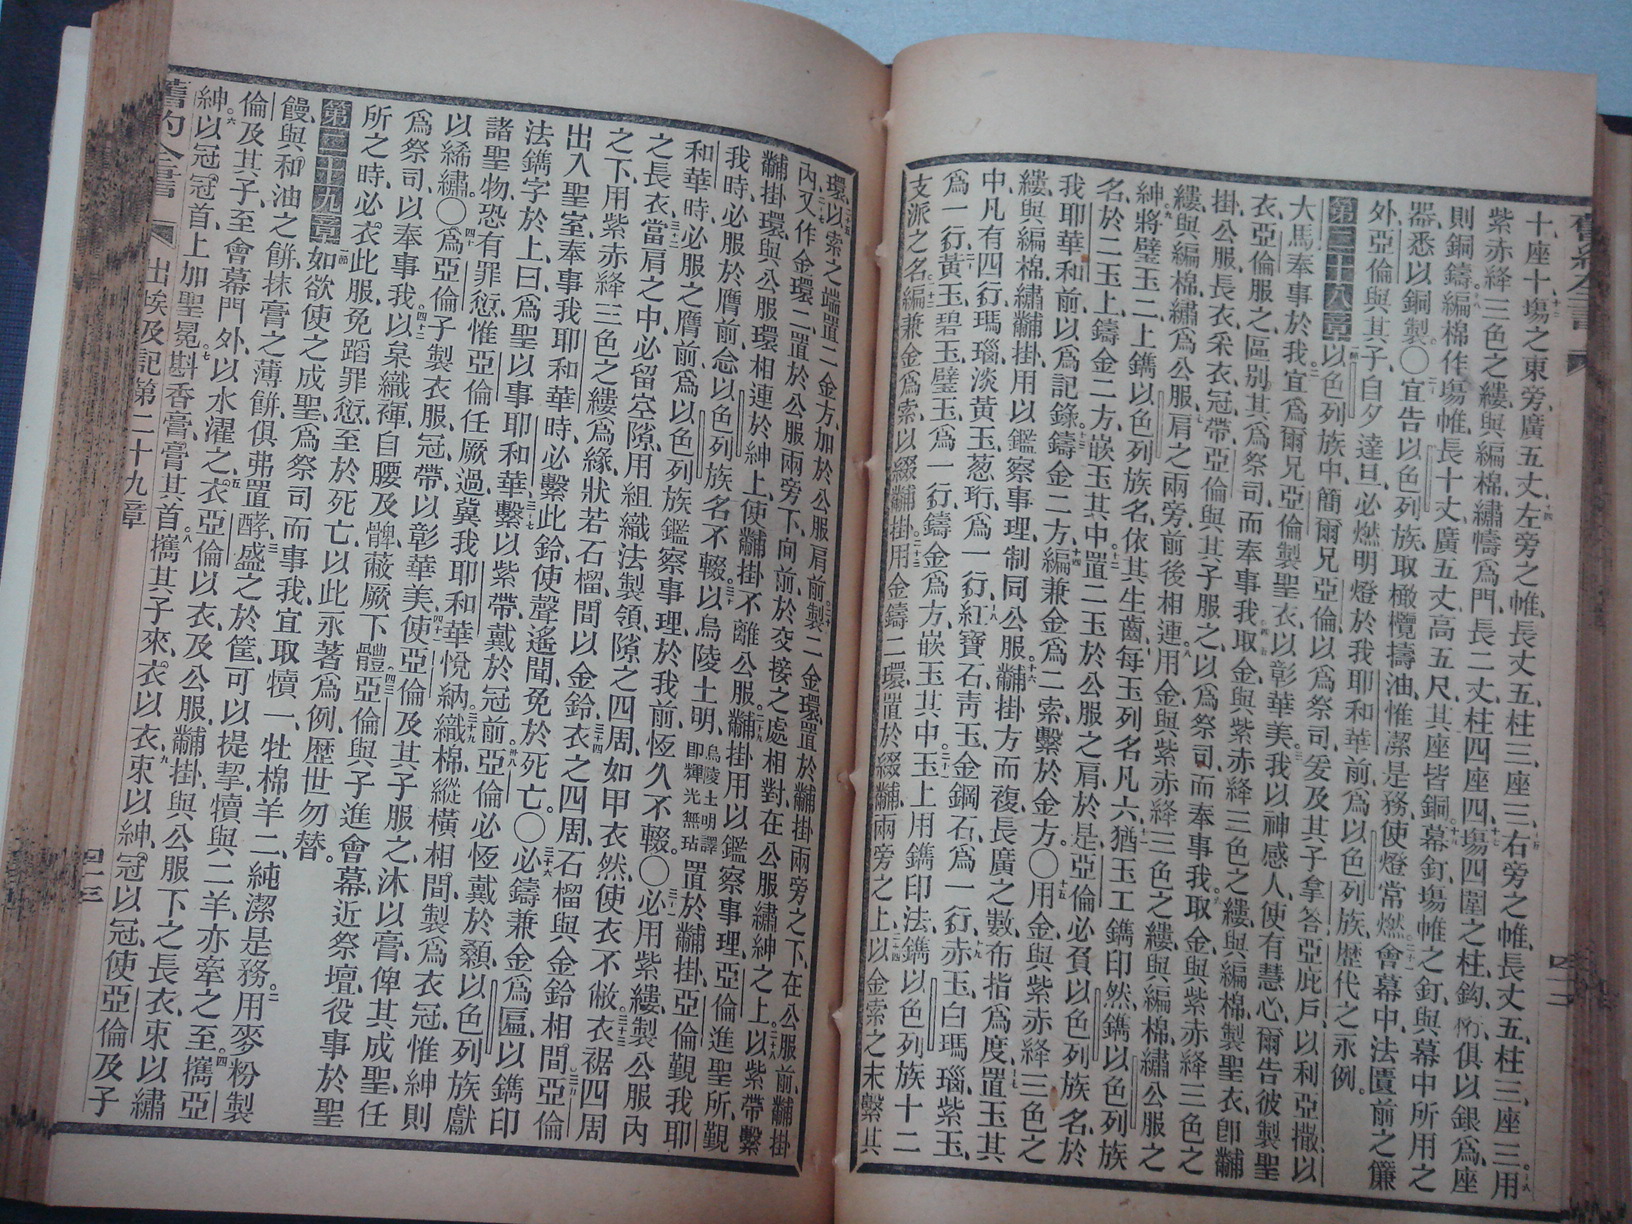 十、座十、塲之東旁、廣五丈、左旁之帷、長丈五、柱三、座三、右旁之帷、長丈五、柱三、座三、用
紫赤絳三色之縷、與編棉、繡幬爲門、長二丈、柱四、座四、塲四圍之柱、鈎、桁、俱以銀爲、座
則銅鑄、編棉作塲帷、長十丈、廣五丈、高五尺、其座皆銅、幕釘、塲帷之釘、與幕中所用之
器、悉以銅製。〇宜告以色列族、取橄欖擣油、惟潔是務、使燈常燃、會幕中、法匱前之簾
外、亞倫與其子、自夕達旦、必燃明燈於我耶和華前、爲以色列族、歷代之永例。
第二十八章 以色列族中、簡爾兄亞倫、以爲祭司、爰及其子拿答、亞庇戶、以利亞撒、以
大馬、奉事於我、宜爲爾兄亞倫製聖衣、以彰華美、我以神感人、使有慧心、爾告彼製聖
衣、亞倫服之、區別其爲祭司、而奉事我、取金與紫赤絳三色之縷、與編棉、製聖衣、卽黼
掛、公服、長衣、采衣、冠、帶、亞倫與其子服之、以爲祭司、而奉事我。取金、與紫赤絳三色之
縷、與編棉、繡爲公服、肩之兩旁、前後相連、用金、與紫赤絳三色之縷、與編棉、繡公服之
紳、將璧玉二、上鐫以色列族名、依其生齒、每玉列名凡六、猶玉工鐫印然、鐫以色列族
名、於二玉上、鑄金二方、嵌玉其中、置二玉於公服之肩、於是亞倫必負以色列族名、於
我耶華和前、以爲記錄、鑄金二方、編兼金爲二索、繫於金方。〇用金、與紫赤絳三色之
縷、與編棉、繡黼掛、用以鑑察事理、制同公服、黼掛方而複、長廣之數、布指爲度、置玉其
中、凡有四行、瑪瑙、淡黃玉、葱珩、爲一行、紅寶石、靑玉、金鋼石、爲一行、赤玉、白瑪瑙、紫玉、
爲一行、黃玉、碧玉、璧玉、爲一行、鑄金爲方、嵌玉其中、玉上用鐫印法、鐫以色列族十二
支派之名、編兼金爲索、以綴黼掛、用金鑄二環、置於綴黼兩旁之上、以金索之末、繫其
環、以索之端、置二金方、加於公服肩前、製二金環、置於黼掛兩旁之下、在公服前、黼掛
內、又作金環二、置於公服兩旁、下向前、於交接之處、相對在公服繡紳之上、以紫帶繫
黼掛環、與公服環相連、於紳上、使黼掛不離公服、黼掛用以鑑察事理、亞倫進聖所、覲
我時、必服於膺前、念以色列族名不輟、以烏陵土明、烏陵土明譯卽輝光無玷置於黼掛、亞倫覲我耶
和華時、必服之膺前、爲以色列族鑑察事理於我前、恆久不輟。〇必用紫縷、製公服內
之長衣、當肩之中、必留空隙、用組織法製領、隙之四周、如甲衣然、使衣不敝、衣裾四周
之下、用紫赤絳三色之縷爲緣、狀若石榴、間以金鈴、衣之四周、石榴與金鈴相間、亞倫
出入聖室、奉事我耶和華時、必繫此鈴、使聲遙聞、免於死亡。〇必鑄兼金爲匾、以鐫印
法鐫字於上、曰、爲聖以事耶和華、繫以紫帶、戴於冠前、亞倫必恆戴於顙、以色列族獻
諸聖物、恐有罪愆、惟亞倫任厥過、冀我耶和華悅納、織棉縱橫相間、製爲衣冠、惟紳則
以絺繡。〇爲亞倫子製衣服、冠、帶、以彰華美、使亞倫及其子服之、沐以膏、俾其成聖、任
爲祭司、以奉事我、以枲織褌、自腰及髀、蔽厥下體、亞倫與子進會幕、近祭壇、役事於聖
所之時、必衣此服、免蹈罪愆、至於死亡、以此永著爲例、歷世勿替。
第二十九章 如欲使之成聖、爲祭司、而事我、宜取犢一、牡棉羊二、純潔是務、用麥粉製
饅、與和油之餅、抹膏之薄餅、俱弗置酵、盛之於筐、可以提挈、犢與二羊、亦牽之至、攜亞
倫及其子、至會幕門外、以水濯之、衣亞倫以衣、及公服、黼掛、與公服下之長衣、束以繡
紳、以冠冠首、上加聖冕、斟香膏膏其首、攜其子來、衣以衣、束以紳、冠以冠、使亞倫及子
舊約全書 出埃及記第二十九章 四十三